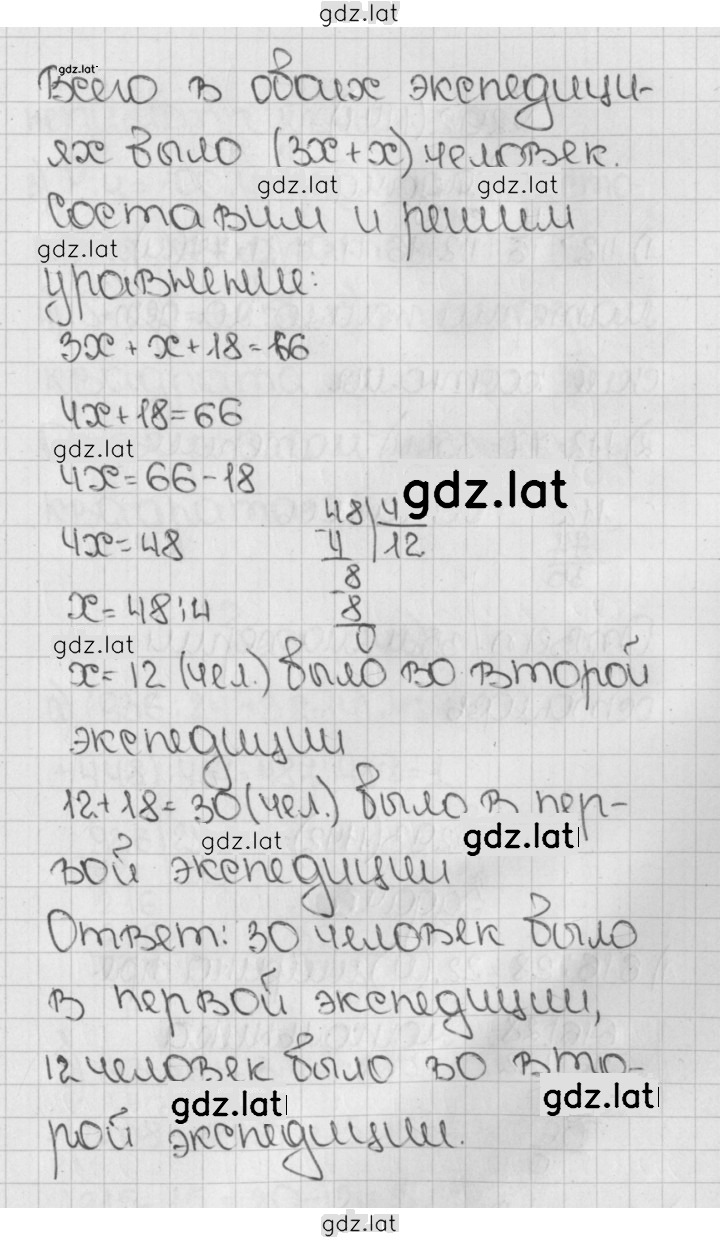 gdz.lat
gdz.lat
Всего в обоих экспедици-
ях было (3x+x) человек.
gdz.lat gdz.lat
Составим и решим
gdz.lat
уравнение:
3x + x + 18 = 66
4x + 18 = 66
gdz.lat
4x = 66 - 18
gdz.lat
48 4
4x = 48 4 12
8
x = 48 : 4 8
0
gdz.lat
x = 12 (чел.) было во второй
экспедиции
12 + 18 = 30 (чел.) было в пер-
gdz.lat gdz.lat
вой экспедиции
Ответ: 30 человек было
в первой экспедиции,
12 человек было во вто-
gdz.lat gdz.lat
рой экспедиции.
gdz.lat